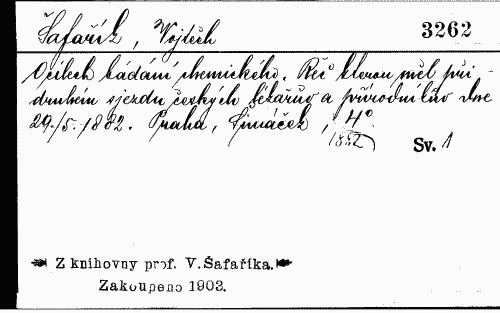 Šafařík, Vojtěch 3262
O cílech bádání chemického. Řeč kterou měl při
druhém sjezdu českých lékařův a přírodníkův dne
29./5. 1882. Praha, Šimáček, 4°
1882 Sv. 1
Z knihovny prof. V. Šafaříka.
Zakoupeno 1903.